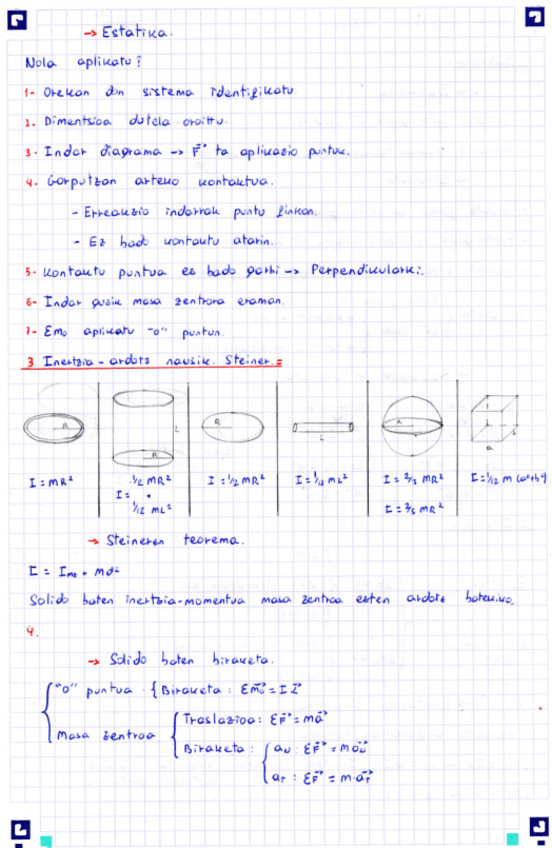 → Estatika.
Nola aplikatu?
1- Orekan don sistema identifikatu.
2. Dimentsioa dutela oroittu.
3- Indar diagrama → F⃗ ta aplikazio puntuk.
4- Gorputzan arteko kontaktua.
- Erreakzio indarrak puntu finkon.
- Ez bado kontaktu atarin.
5- Kontaktu puntua ez bado garbi → Perpendikularki.
6- Indar guzik masa zentrora eraman.
7- Emo aplikatu "0" puntun.
3. Inertzia-ardotz nausik. Steiner.=
R
R L
R
L
R
a
I = mR²
1/2 mR²
I = +
1/12 mL²
I = 1/2 mR²
I = 1/12 mL²
I = 2/3 mR²
I = 2/5 mR²
I = 1/12 m (a²+b²)
→ Steineren teorema.
I = Imz + md²
Solido baten inertzia-momentua masa zentroa ezten ardotz
4.
→ Solido baten biraketa.
"0" puntua { Biraketa : ΣM⃗o = I
Masa zentroa
Traslazioa : ΣF⃗ = ma⃗
Biraketa :
aN : ΣF⃗ = m a⃗N
aT : ΣF⃗ = m·a⃗T